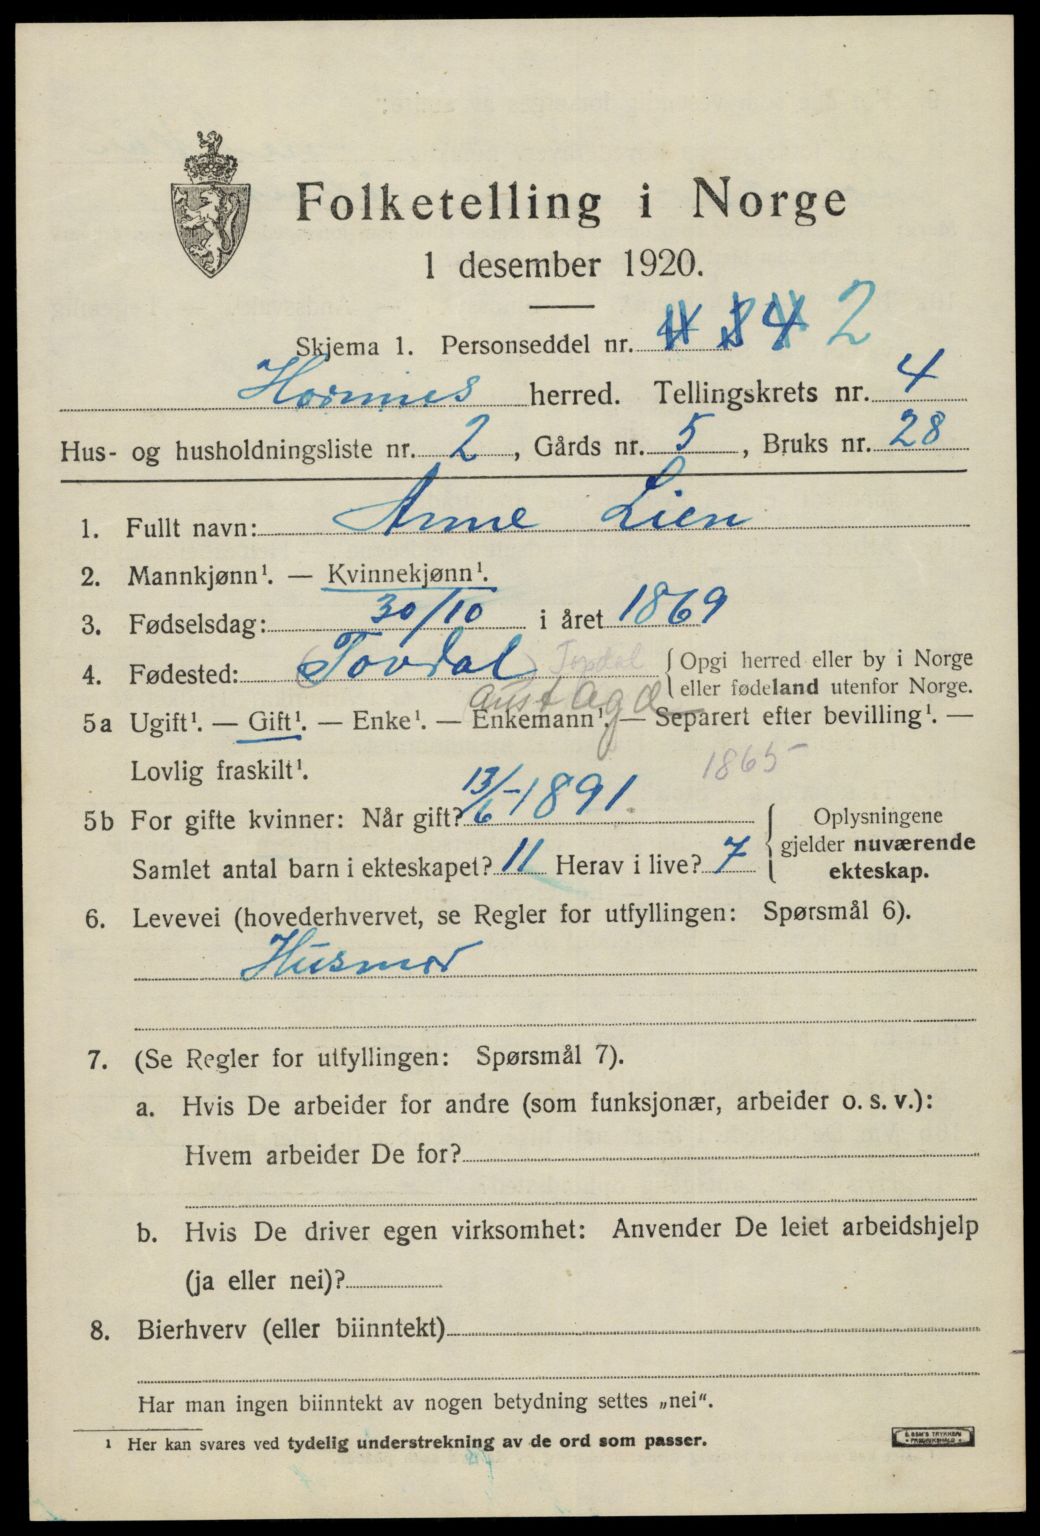 Folketelling i Norge
1 desember 1920.
Skjema 1. Personseddel nr. 2
Hornnes herred. Tellingskrets nr. 4
Hus- og husholdningsliste nr. 2, Gårds nr. 5, Bruks nr. 28
1. Fullt navn: Anne Lien
2. Mannkjønn¹. — Kvinnekjønn¹.
3. Fødselsdag: 30/10 i året 1869
4. Fødested: (Tovdal) Topdal { Opgi herred eller by i Norge
eller fødeland utenfor Norge.
Aust Agd
5a Ugift¹. — Gift¹. — Enke¹. — Enkemann¹. — Separert efter bevilling¹. —
Lovlig fraskilt¹. 1865
5b For gifte kvinner: Når gift? 13/6-1891 { Oplysningene
gjelder nuværende
Samlet antal barn i ekteskapet? 11 Herav i live? 7 ekteskap.
6. Levevei (hovederhvervet, se Regler for utfyllingen: Spørsmål 6).
Husmor
7. (Se Regler for utfyllingen: Spørsmål 7).
a. Hvis De arbeider for andre (som funksjonær, arbeider o. s. v.):
Hvem arbeider De for?
b. Hvis De driver egen virksomhet: Anvender De leiet arbeidshjelp
(ja eller nei)?
8. Bierhverv (eller biinntekt)
Har man ingen biinntekt av nogen betydning settes „nei".
¹ Her kan svares ved tydelig understrekning av de ord som passer.